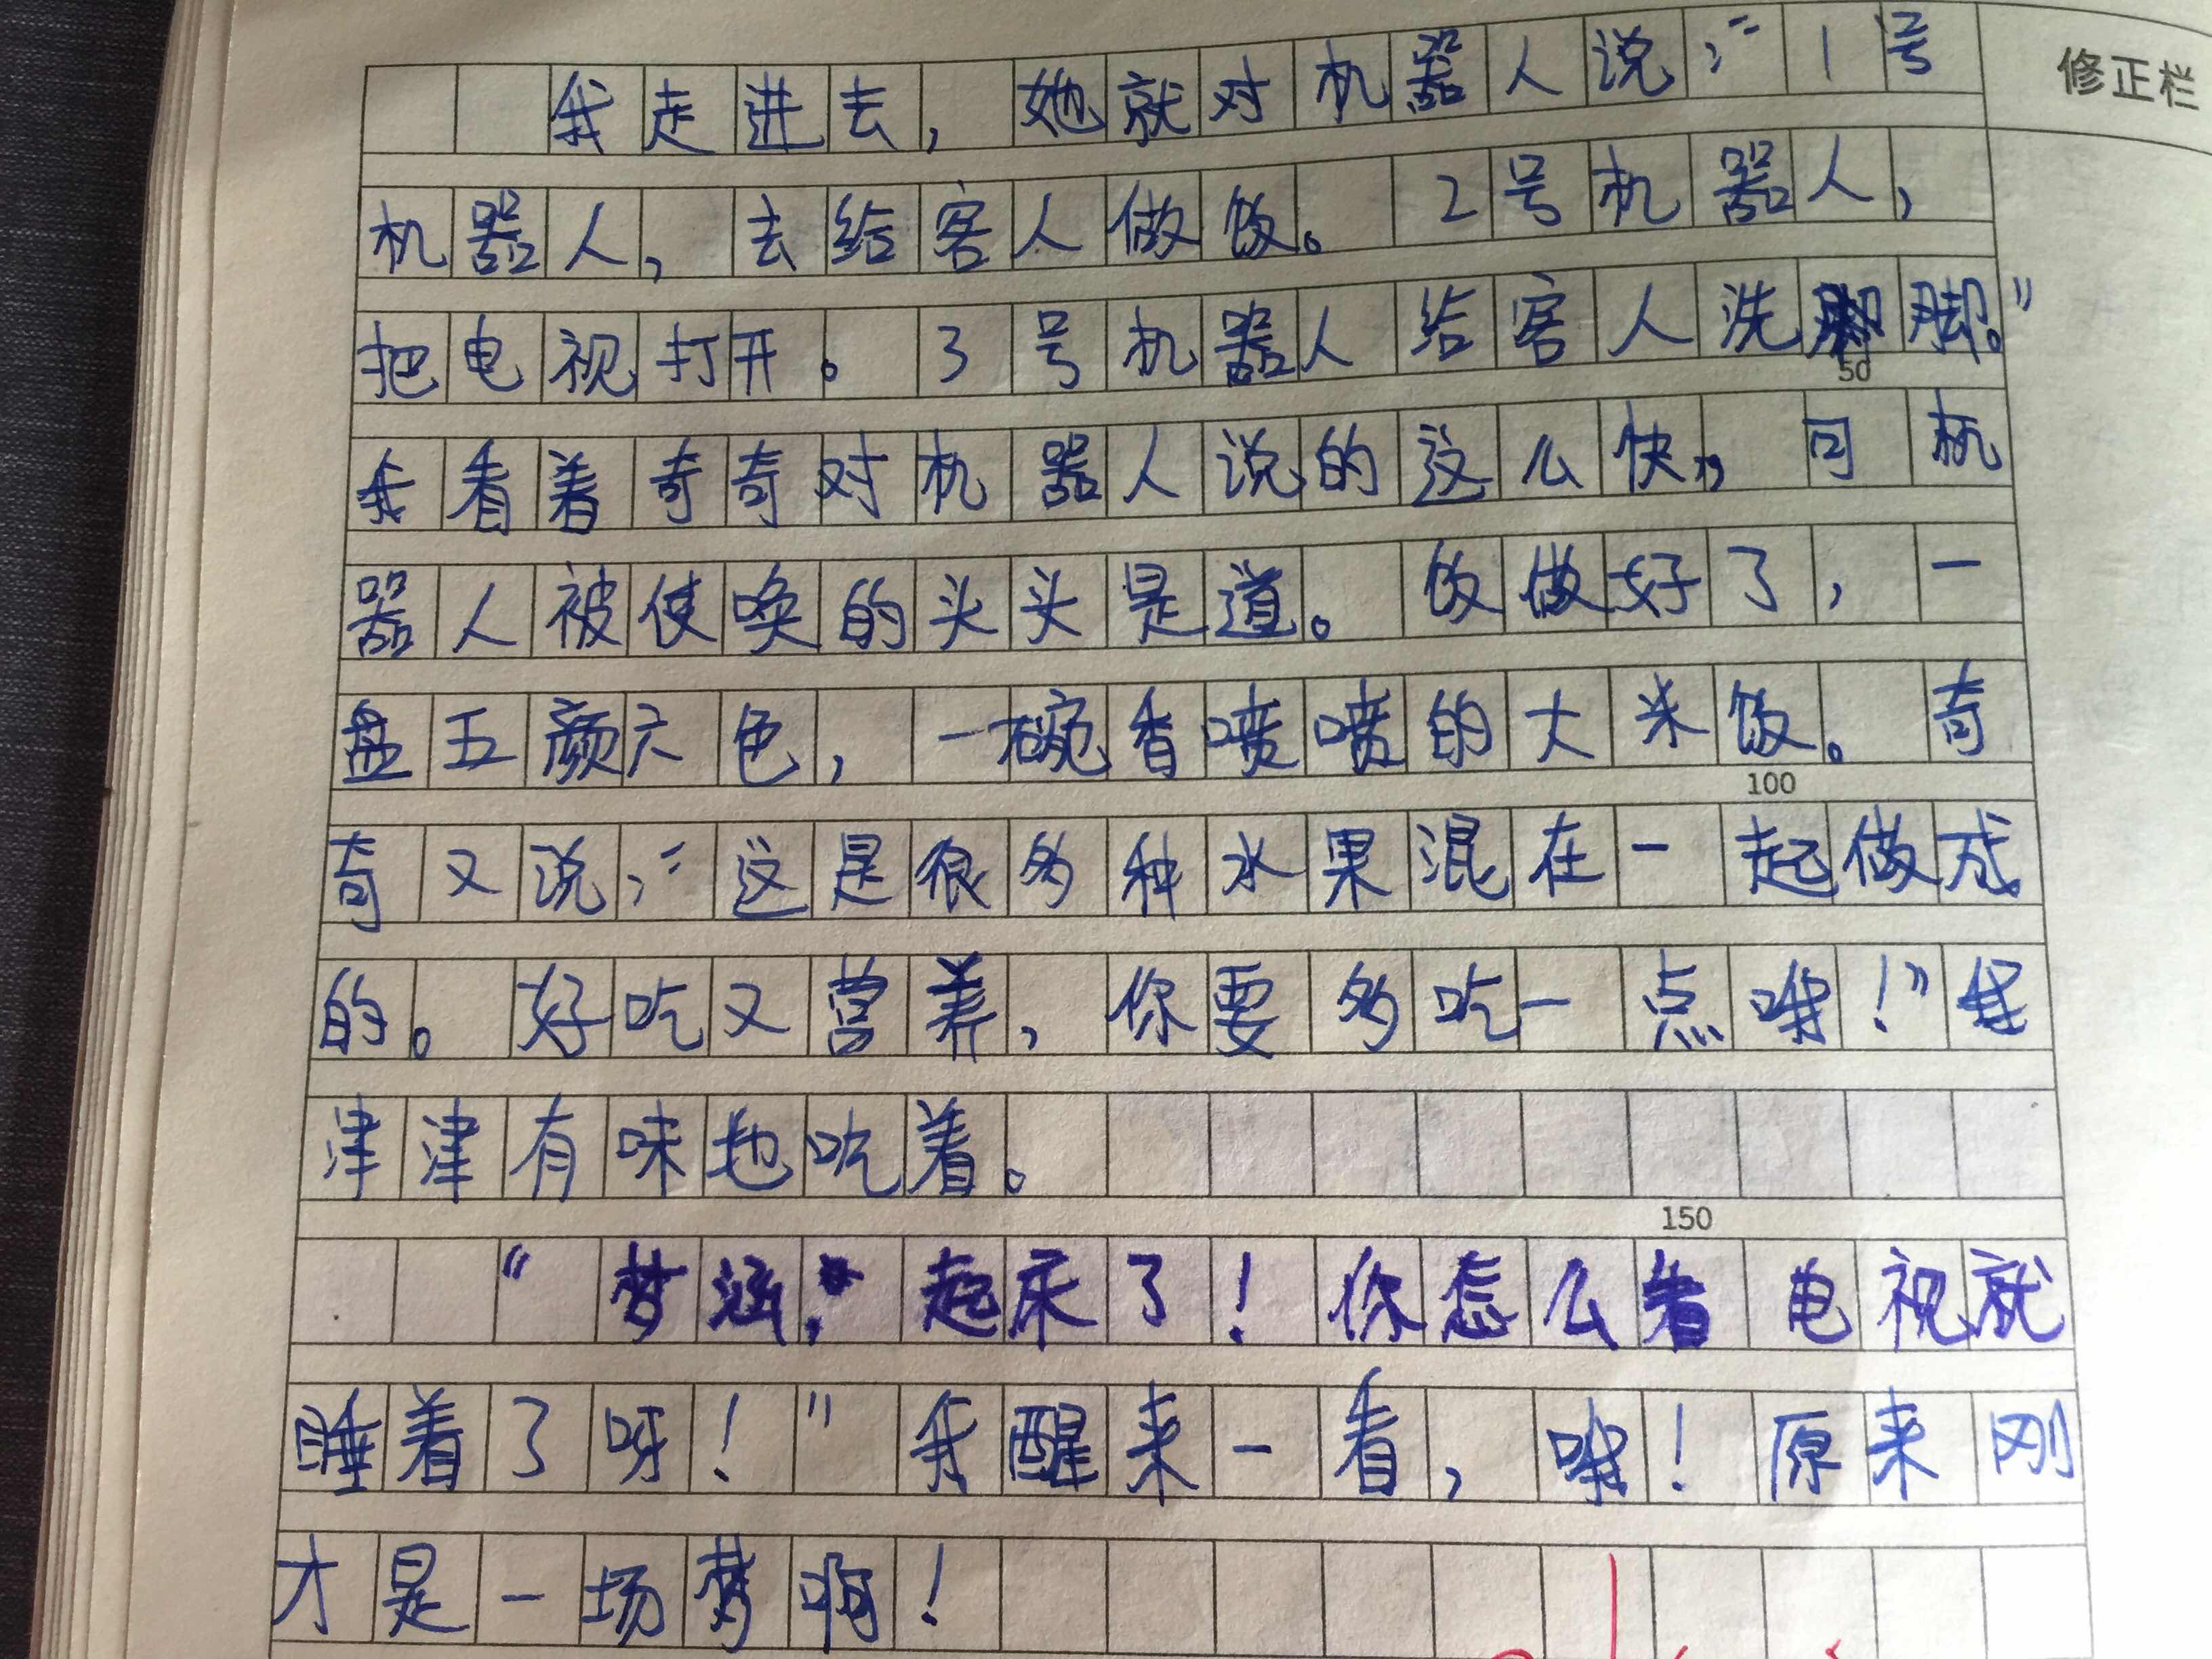 修正栏
我走进去，她就对机器人说：“1号
机器人，去给客人做饭。2号机器人，
把电视打开。3号机器人给客人洗脚。”
50
我看着奇奇对机器人说的这么快，可机
器人被使唤的头头是道。饭做好了，一
盘五颜六色，一碗香喷喷的大米饭。奇
100
奇又说：“这是很多种水果混在一起做成
的。好吃又营养，你要多吃一点哦！”我
津津有味地吃着。
150
“梦涵，起床了！你怎么看电视就
睡着了呀！”我醒来一看，哦！原来刚
才是一场梦啊！